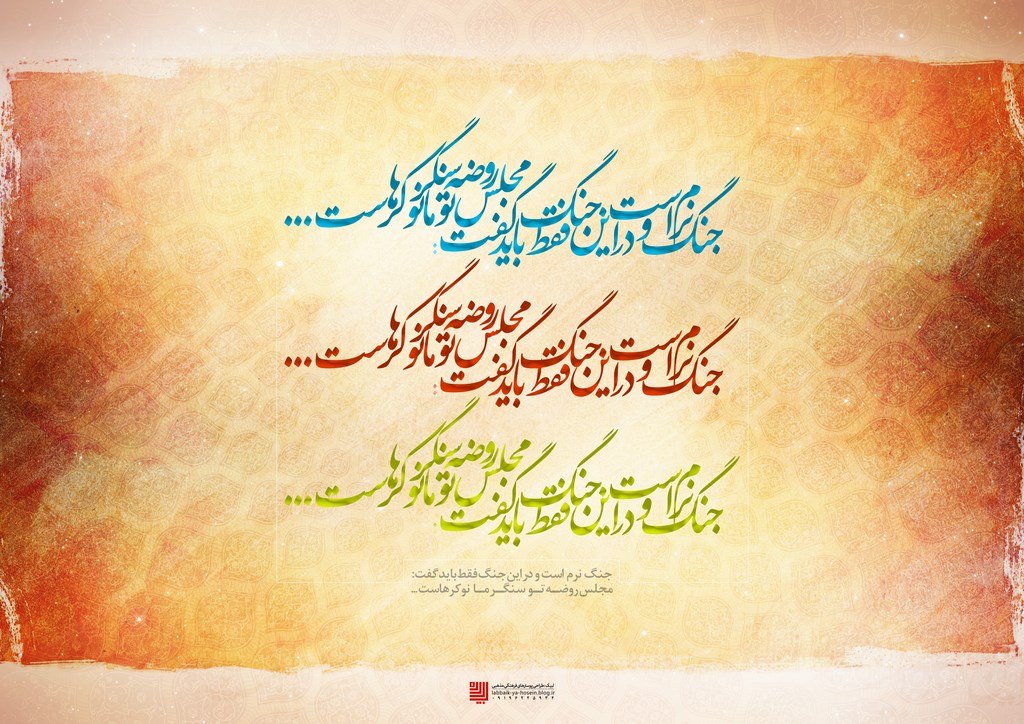 جنگ نرم است و در این جنگ فقط باید گفت:
مجلس روضه تو سنگر ما نوکرهاست...
جنگ نرم است و در این جنگ فقط باید گفت:
مجلس روضه تو سنگر ما نوکرهاست...
جنگ نرم است و در این جنگ فقط باید گفت:
مجلس روضه تو سنگر ما نوکرهاست...
جنگ نرم است و در این جنگ فقط باید گفت:
مجلس روضه تو سنگر ما نوکرهاست...
labbaik-ya-hosein.blog.ir